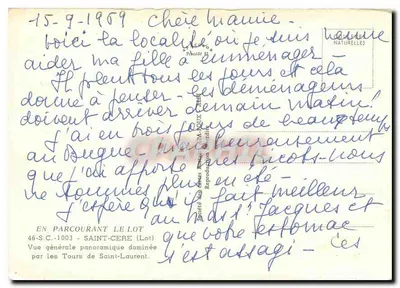 15-9-1969 Chère Mamie -
Voici la localité où je suis venue
aider ma fille à emménager -
Il pleut tous les jours et cela
donne à penser - les déménageurs
doivent arriver demain matin!
J'ai eu trois jours de beau temps
au Bugue, heureusement
que j'ai apporté des tricots - nous
ne sommes plus en été -
J'espère qu'il fait meilleur
au mas St Jacques et
que votre estomac
s'est assagi - Ces
NATURELLES
EN PARCOURANT LE LOT
46-S.C.-1003 - SAINT-CERE (Lot)
Vue générale panoramique dominée
par les Tours de Saint-Laurent.